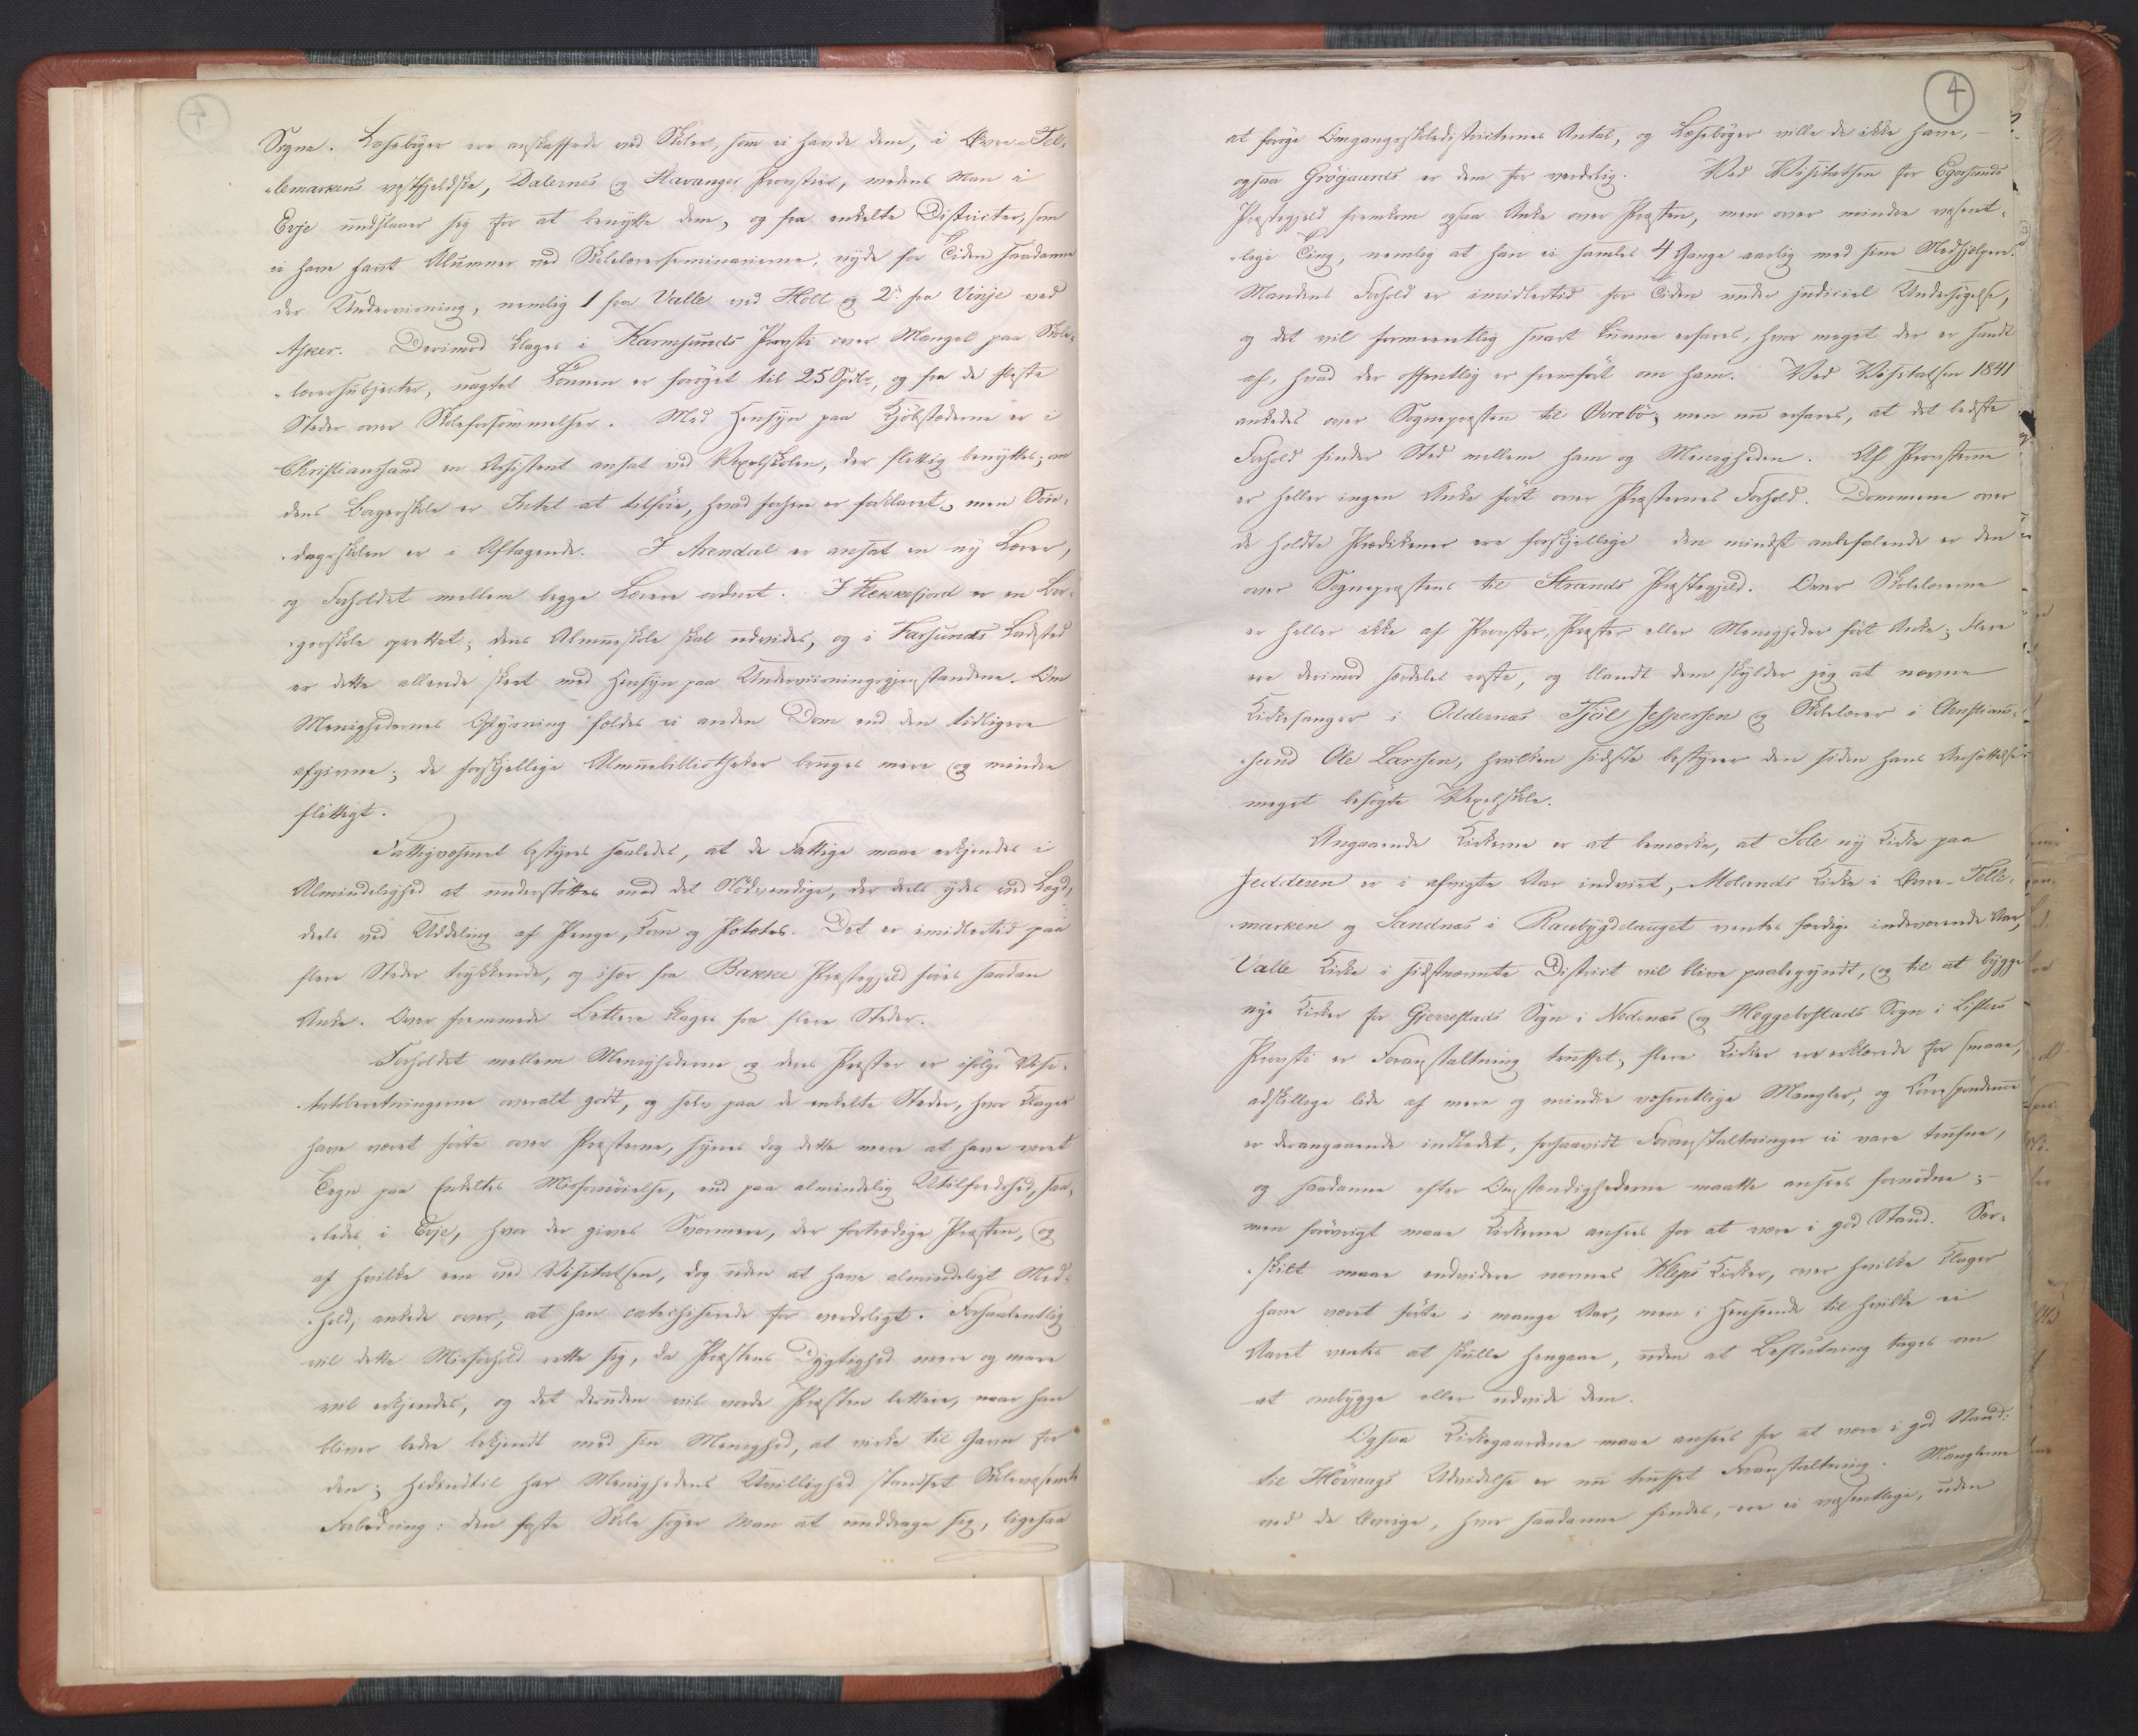 Sogne. Læsebøger ere anskaffede ved Skoler, som ei havde dem, i Øvre-Tel-
lemarkens vestfjeldske, Dalernes og Stavanger Provstier, medens Man i
Evje undslaaer sig for at benytte dem, og fra enkelte Districter, som
ei have havt Alumner ved Skolelærerseminarierne, nyde for Tiden saadanne
der Underviisning, nemlig 1 fra Valle ved Holt og 2 fra Vinje ved
Asker. Derimod klages i Karmsunds Provsti over Mangel paa Skole-
lærersubjecter, uagtet Lønnen er forøget til 25 Spdlr, og fra de fleste
Steder over Skoleforsømmelser. Med Hensyn paa Kjøbstæderne er i
Christianssand en Assistent ansat ved Vexelskolen, der flittig benyttes; om
dens Borgerskole er Intet at tilføie, hvad forhen er forklaret, men Søn-
dagsskolen er i Aftagende. I Arendal er ansat en ny Lærer,
og Forholdet mellem begge Lærere ordnet. I Flekkefjord er en Bor-
gerskole oprettet; dens Almueskole skal udvides, og i Farsunds Ladsted
er dette allerede skeet med Hensyn paa Underviisningsgjenstandene. Om
Menighedernes Oplysning fældes ei anden Dom end den tidligere
afgivne; de forskjellige Almuebibliotheker bruges mere og mindre
flittigt.
Fattigvæsenet bestyres saaledes, at de Fattige maae erkjendes i
Almindelighed at understøttes med det Nødvendige, der deels ydes ved Lægd,
deels ved Uddeling af Penge, Korn og Potetes. Det er imidlertid paa
flere Steder trykkende, og især fra Bakke Præstegjeld føres saadan
Anke. Over fremmede Betlere klages fra flere Steder.
Forholdet mellem Menighederne og deres Præster er ifølge Visi-
tatsberetningerne overalt godt, og selv paa de enkelte Steder, hvor Klager
have været førte over Præsterne, synes dog dette mere at have været
Tegn paa Enkeltes Misfornøielse, end paa almindelig Utilfredshed, saa-
ledes i Evje, hvor der gives Sværmere, der fortrædige Præsten, og
af hvilke een ved Visitatsen, dog uden at have almindeligt Med-
hold, ankede over, at han catechiserede for verdsligt. Forhaabentlig
vil dette Misforhold rette sig, da Præstens Dygtighed mere og mere
vil erkjendes, og det desuden vil vorde Præsten lettere, naar han
bliver bedre bekjendt med sin Menighed, at virke til Gavn for
den; hidindtil har Menighedens Uvillighed standset Skolevæsenets
Forbedring: den faste Skole søger Man at unddrage sig, ligesaa
4
at forøge Omgangsskoledistricternes Antal, og Læsebøger ville de ikke have, -
ogsaa Grögaards er dem for verdslig. Ved Visitatsen for Egersunds
Præstegjeld fremkom ogsaa Anke over Præsten, men over mindre væsent-
lige Ting, nemlig at han ei samles 4 Gange aarlig med sine Medhjelpere.
Mandens Forhold er imidlertid for Tiden under judiciel Undersøgelse,
og det vil formeentlig snart kunne erfares, hvor meget der er sandt
af, hvad der offentlig er fremført om ham. Ved Visitatsen 1841
ankedes over Sognepræsten til Øvrebö; men nu erfares, at det bedste
Forhold finder Sted mellem ham og Menigheden. Af Provsterne
er heller ingen Anke ført over Præsternes Forhold. Dommene over
de holdte Prædikener ere forskjellige den mindst anbefalende er den
over Sognepræstens til Strands Præstegjeld. Over Skolelærerne
er heller ikke af Provster, Præster eller Menigheder ført Anke; Flere
ere derimod særdeles roste, og blandt dem skylder jeg at nævne
Kirkesanger i Oddernæs Tjöl Jespersen og Skolelærer i Christians-
sand Ole Larssen, hvilken sidste bestyrer den siden hans Ansættelse
meget besøgte Vexelskole.
Angaaende Kirkerne er at bemærke, at Sole ny Kirke paa
Jedderen er i afvigte Aar indviet, Molands Kirke i Øvre-Telle-
marken og Sandnæs i Raabygdelauget ventes færdige indeværende Aar,
Valle Kirke i sidstnævnte District vil blive paabegyndt, og til at bygge
nye Kirker for Gjerrestads Sogn i Nedenæs og Heggebostads Sogn i Listers
Provsti er Foranstaltning truffet; flere Kirker ere erklærede for smaae,
adskillige lide af mere og mindre væsentlige Mangler, og Correspondence
er derangaaende indledet, forsaavidt Foranstaltninger ei vare trufne,
og saadanne efter Omstændighederne maatte ansees fornødne; -
men forøvrigt maae Kirkerne ansees for at være i god Stand. Sær-
skilt maae endvidere nævnes Kleps Kirker, over hvilke Klager
have været førte i mange Aar, men i Henseende til hvilke ei
Aaret ventes at skulle hengaae, uden at Beslutning tages om
at ombygge eller udvide dem.
Ogsaa Kirkegaardene maae ansees for at være i god Stand:
til Hövaags Udvidelse er nu truffet Foranstaltning. Manglerne
ved de Øvrige, hvor saadanne findes, ere ei væsentlige, uden